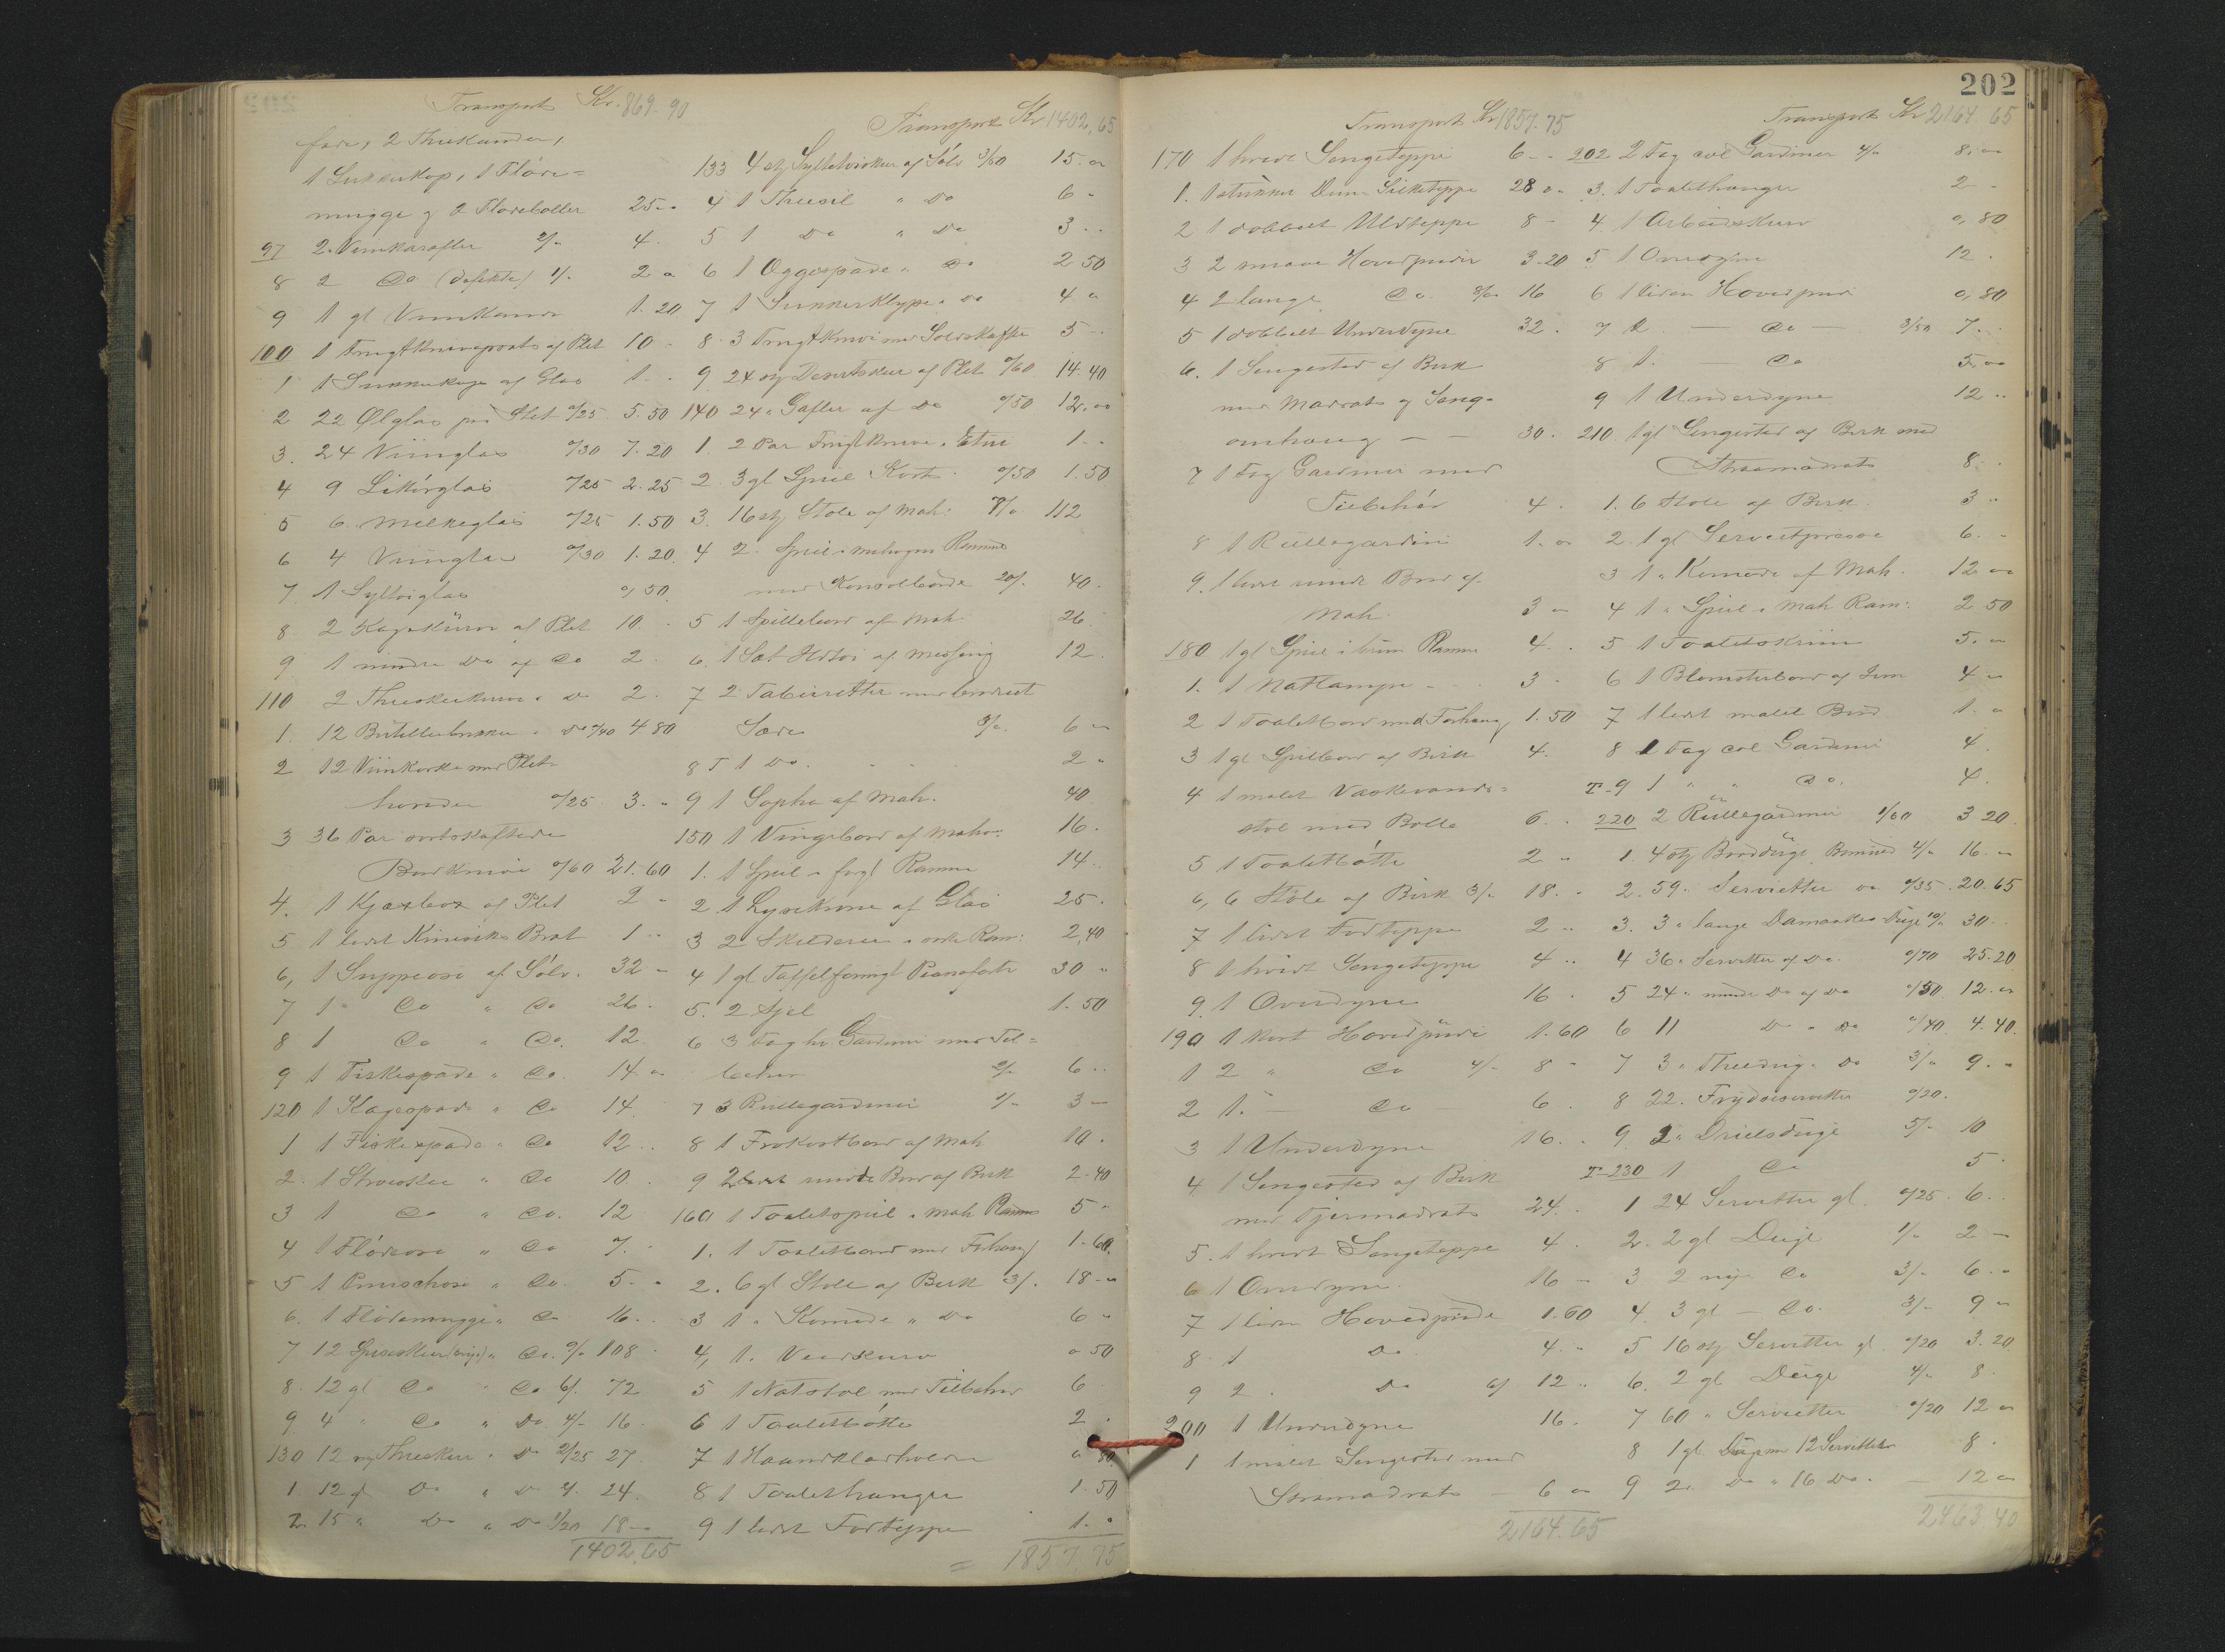 Transport Kr. 869. 90
fade, 2 Theekander,
1 Sukkerkop, 1 Fløde=
mugge og 2 Flødeboller 25 "
97 2 Viinkarafler 2/- 4.
8 2 Do (defekte) 1/- 2 "
9 1 gl Viinkande 1. 20
100 1 Frugtknivsplads af Plet 10 -
1 1 Sukkerkop af Glas 1. -
2 22 Ølglas paa Stet "/25 5. 50
3. 24 Viinglas "/30 7. 20
4 9 Likørglas "/25 2. 25
5 6 Melkeglas "/25 1. 50
6 4 Viinglas "/30 1. 20
7 1 Sylteiglas 0, 50
8. 2 Kagekurve af Plet 10. -
9 1 mindre Do af Do 2.
110 2 Theeskekurve " Do 2.
1. 12 Butellebrikker " Do "/40 4 80
2 12 Viinkorke med Plet-
hoveder "/25 3. "
3 36 Par sortskaftede
Bordknive "/60 21. 60
4. 1 Kjaxbox af Plet 2 -
5 1 lidet Kinesisk Bret 1 "
6, 1 Suppeøse af Sølv. 32 -
7 1 " Do " Do 26.
8 1 Do " Do. 12
9 1 Fiskespade " Do. 14. "
120 1 Kagespade " Do 14
1 1 Fiskespade " Do 12 ..
2. 1 Strøeskee " Do 10.
3 1 Do " Do. 12
4 1 Flødeøse " Do 7.
5 1 Punschøse " Do. 5 - "
6. 1 Flødemugge " Do 16. .
7 12 Spiseskeer (nye) " Do. 9/- 108 -
8. 12 gl Do " Do 6/. 72
9 4 " Do " Do. 4/- 16.
130 12 ny Theskeer " Do 2/25 27
1 12 gl Do " Do 2/. 24.
2. 15 " Do " Do 1/20 18 -
1402. 65
Transport Kr 1402, 65
133 4 stk Sylteteiskeer af Sølv 3/80 15. "
4 1 Theesil " Do 6 -
5 1 Do " Do 3 ..
6 1 Æggespade " Do 2 50
7 1 Sukkerklype " Do 4 "
8. 3 Frugtknive med Sølvskafte 5 -
9. 24 stk Desertskeer af Plet "/60 14. 40
140 24 " Gafler af Do "/50 12, "
1. 2 Par Frugtknive i Etui 1 "
2. 3 gl Spil Kort. "/50 1. 50
3. 16 stk Stole af Mah: 7/" 112
4 2 Speil i mahogni Ramme
med Konsolborde 20/. 40.
5 1 Spillebord af Mah. 26
6. 1 Sæt Ildtøi af Messing 12.
7 2 Tabouretter med broderet
Sæde 3/- 6 -
8 T 1 Do. - - 2 "
9 1 Sopha af Mah. 40
150 1 Vingebord af Mahr. 16.
1. 1 Speil i forgl Ramme 14.
2 1 Lysekrone af Glas 25.
3 2 Skilderier i sorte Ram: 2, 40
4 1 gl Taffelformigt Pianoforte 30 "
5. 2 Sjal 1. 50
6 3 Fag hv. Gardiner med Til=
behør 2/- 6 ..
7 3 Rullegardiner 1/- 3 -
8 1 Frokostbord af Mah 10.
9 2 lidet rundt Bord af Birk 2. 40
160 1 Toiletspeil i Mah Ramme 5 "
1. 1 Toiletbord med Forhang 1. 60.
2. 6 gl Stole af Birk 3/. 18 - "
3 1 " Komode " Do 6 "
4, 1. Vedkurv 0 50
5 1 Natstol med Tilbehør 6
6 1 Toiletbøtte 2.
7 1 Haandklædholder 0 80
8 1 Toalethænger 1. 50
9 1 lidet Fodteppe 1. "
= 1857. 75
Transport Kr 1857. 75
170 1 hvidt Sengeteppe 6 - -
1. 1 stukket Duns Silketeppe 28 "
2 1 dobbelt Uldteppe 8 -
3 2 smaae Hovedpuder 3. 20
4 2 lange Do. 8/" 16
5 1 dobbelt Underdyne 32.
6. 1 Sengested af Birk
med Madrats og Seng-
omhang — — 30.
7 1 Fag Gardiner med
Tilbehør 4.
8 1 Rullegardin 1. "
9. 1 lidet rundt Bord af
Mah. 3 "
180 1 gl Speil i brun Ramme 4. .
1. 1 Natlampe - 3 -
2 1 Toiletbord med Forhang 1. 50
3 1 gl Spilbord af Birk 4.
4 1 malet Vaskevands=
stol med Bolle 6. .
5 1 Toiletbøtte 2 "
6, 6 Stole af Birk 3/- 18. .
7 1 lidet Fodteppe 2 ..
8 1 hvidt Sengeteppe 4 ..
9. 1 Overdyne 16.
190 1 kort Hovedpude 1. 60
1 2 " Do 4/- 8 -
2 1. — Do — 6.
3 1 Underdyne 16. .
4 1 Sengested af Birk
med Fjermadrats 24. .
5. 1 hvidt Sengeteppe 4.
6 1 Overdyne 16 -
7 1 liden Hovedpude 1. 60
8. 1 Do 4. "
9 2. Do 6/ 12 ..
200 1 Underdyne 16.
1 1 malet Sengested med
Straamadrats — 6 "
2164. 65
202
Transport Kr 2164 65
202 2 Fag col Gardiner 4/" 8. "
3. 1 Toalethænger 2 -
4. 1 Arbeidskurv 0, 80
5 1 Overdyne 12.
6 1 liden Hovedpude 0, 80
7 2. — Do — 3/50 7. .
8 1. — Do 5. "
9 1 Underdyne 12 ..
210. 1 gl Sengested af Birk med
Straamadrats 8.
1. 6 Stole af Birk. 3 ..
2. 1 gl Serviettpresse 6. -
3 1 " Komode af Mah. 12 "
4 1 " Speil i Mah Ram: 2 50
5 1 Toaletskriin 5. "
6 1 Blomsterbord af Jern 4 "
7 1 lidet malet Bord 1. "
8 1 Fag col Gardiner 4
T-9 1 " " Do. 4.
220 2 Rullegardiner 1/60 3 20.
1. 4 stk Borddüge Bomuld 4/" 16. "
2. 59. Servietter Do "/35. 20. 65
3. 3 " lange Damaskes Düge 10/" 30
4 36 " Servietter af Do. "/70 25. 20
5 24 " mindre Do af Do "/50 12. "
6 11 Do " Do "/40. 4. 40.
7 3 " Theedug " Do 3/" 9. "
8 22. Frydseservietter "/20.
9. 2 " Dreilsdüge 5/- 10
T-230 1 Do 5 -
1 24 Servietter gl. "/25. 6. .
2. 2 gl Duge 1/" 2 -
3 2 nye Do 3/- 6. "
4. 3 gl — Do. 3/- 9 "
5 16 stk Servietter gl "/20 3. 20
6. 2 gl Duge 4/" 8.
7 60 " Servietter "/20 12 "
8 1 gl. Dug m 12 Servietter 8.
9 2. Do " 16 Do. — 12 "
2463 40